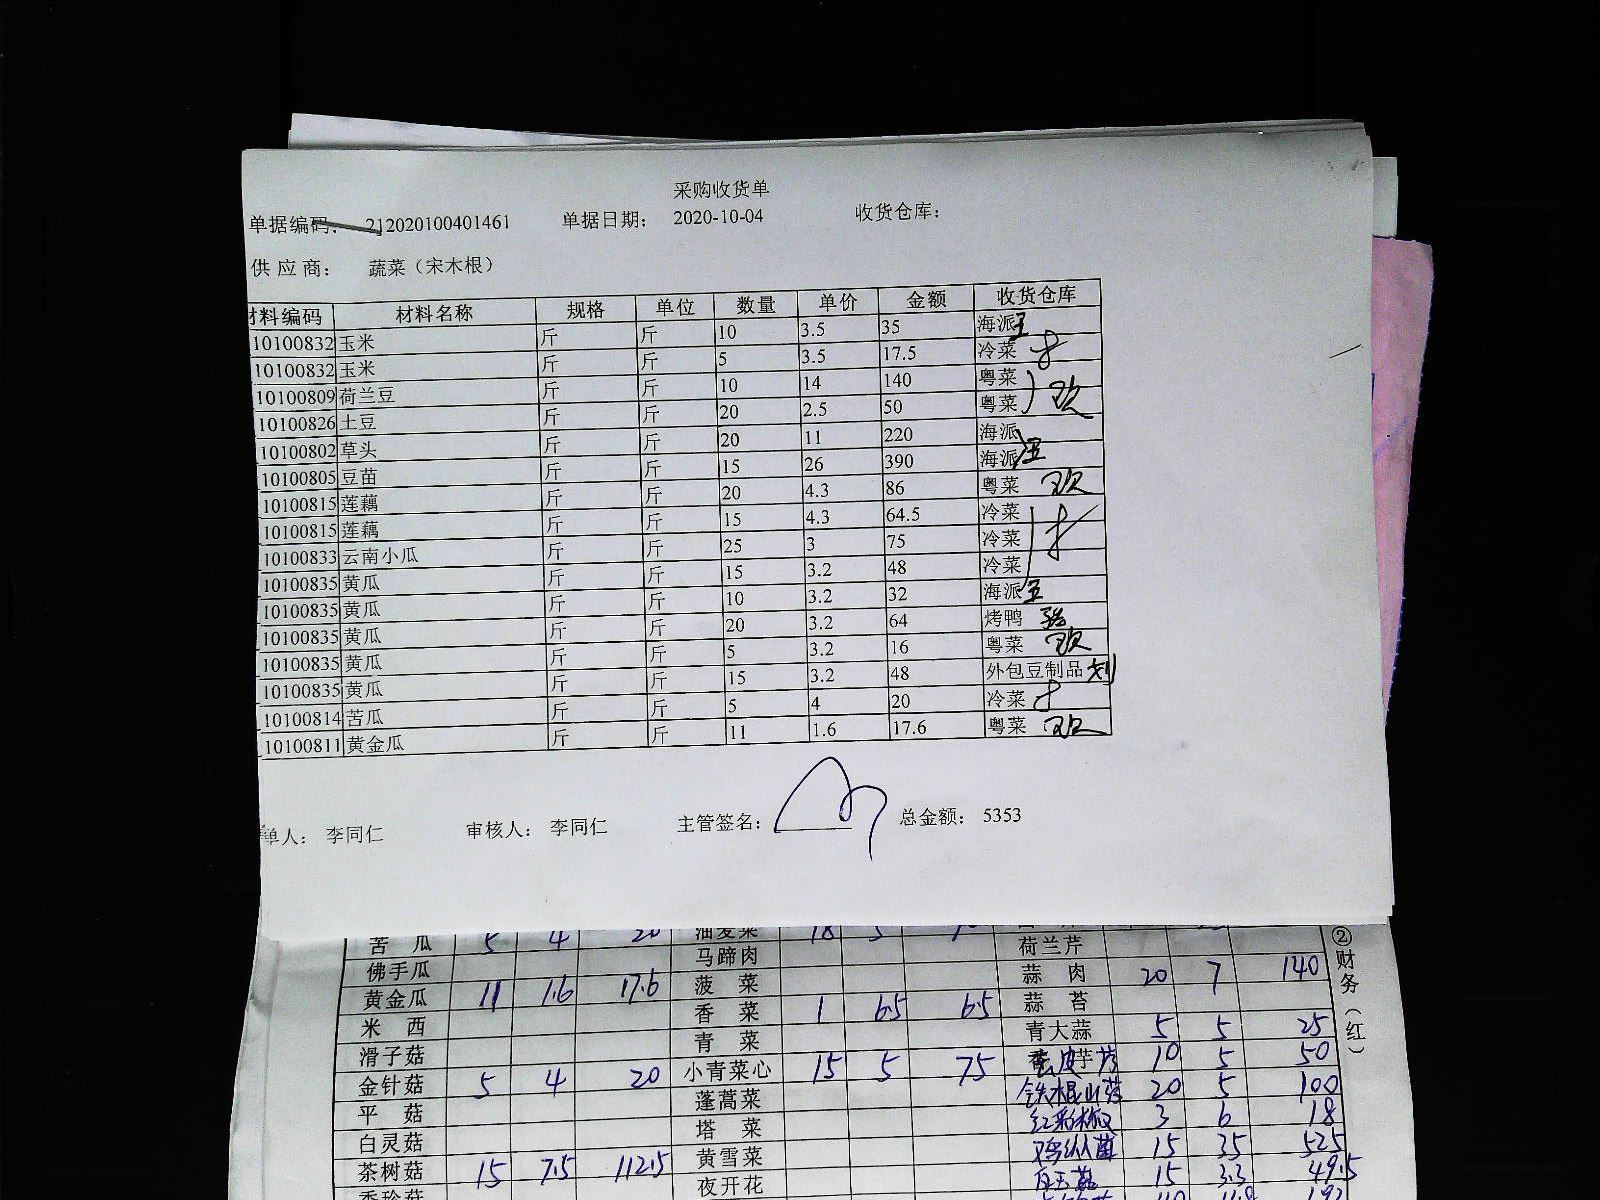 采购收货单
单据编码: 212020100401461 单据日期: 2020-10-04 收货仓库:
供应商: 蔬菜（宋木根）
材料编码 材料名称 规格 单位 数量 单价 金额 收货仓库
10100832 玉米 斤 斤 10 3.5 35 海派 王
10100832 玉米 斤 斤 5 3.5 17.5 冷菜
10100809 荷兰豆 斤 斤 10 14 140 粤菜
10100826 土豆 斤 斤 20 2.5 50 粤菜
10100802 草头 斤 斤 20 11 220 海派
10100805 豆苗 斤 斤 15 26 390 海派 王
10100815 莲藕 斤 斤 20 4.3 86 粤菜
10100815 莲藕 斤 斤 15 4.3 64.5 冷菜
10100833 云南小瓜 斤 斤 25 3 75 冷菜
10100835 黄瓜 斤 斤 15 3.2 48 冷菜
10100835 黄瓜 斤 斤 10 3.2 32 海派 王
10100835 黄瓜 斤 斤 20 3.2 64 烤鸭
10100835 黄瓜 斤 斤 5 3.2 16 粤菜
10100835 黄瓜 斤 斤 15 3.2 48 外包豆制品 刘
10100814 苦瓜 斤 斤 5 4 20 冷菜
10100811 黄金瓜 斤 斤 11 1.6 17.6 粤菜
单人: 李同仁 审核人: 李同仁 主管签名: 总金额: 5353
苦瓜 5 4 20 油麦菜 18 5
佛手瓜 马蹄肉 荷兰芹
黄金瓜 11 1.6 17.6 菠菜 蒜肉 20 7 140
米西 香菜 1 6.5 6.5 蒜苔
滑子菇 青菜 青大蒜 5 5 25
金针菇 5 4 20 小青菜心 15 5 75 芋艿 10 5 50
平菇 蓬蒿菜 铁棍山药 20 5 100
白灵菇 塔菜 红彩椒 3 6 18
茶树菇 15 7.5 112.5 黄雪菜 鸡纵菌 15 35 525
夜开花 白玉菇 15 3.3 49.5
②财务（红）